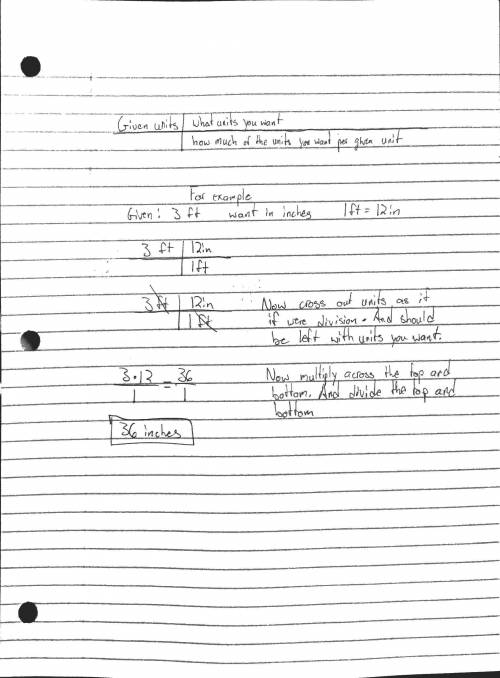 Given units | what units you want
how much of the units you want per given unit
For example
Given: 3 ft want in inches 1ft = 12in
3 ft | 12in
1ft
3 ft | 12in Now cross out units as if
1 ft if were division. And should
be left with units you want.
3 • 12 = 36 Now multiply across the top and
1 1 bottom. And divide the top and
bottom
36 inches